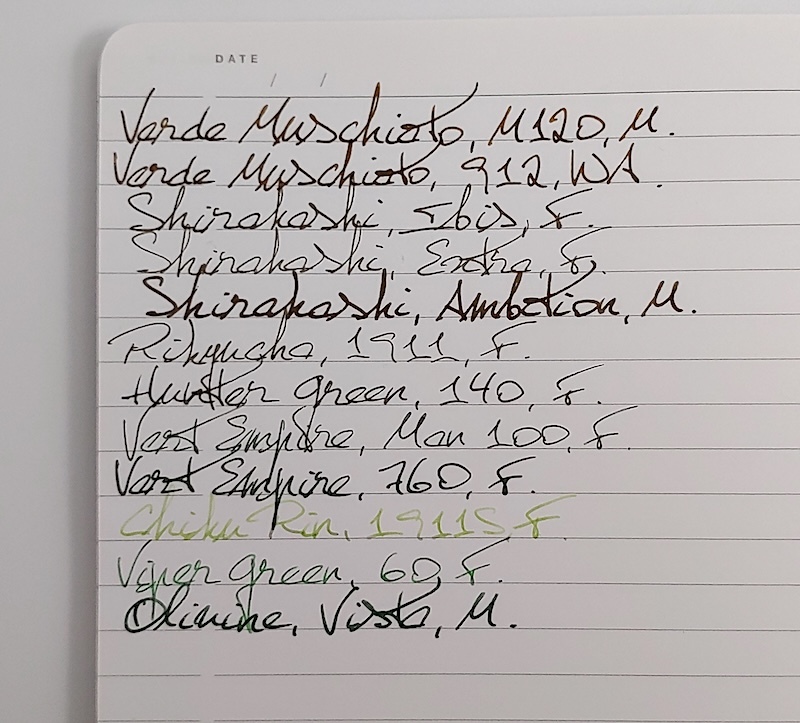 DATE
/ /
Verde Muschiato, M120, M.
Verde Muschiato, 912, WA.
Shirakashi, Ibis, F.
Shirakashi, Extra, F.
Shirakashi, Ambition, M.
Rikyucha, 1911, F.
Hunter green, 140, F.
Vert Empire, Man 100, F.
Vert Empire, 760, F.
Chiku Rin, 1911S F.
Viper green, 60, F.
Olivine, Vista, M.